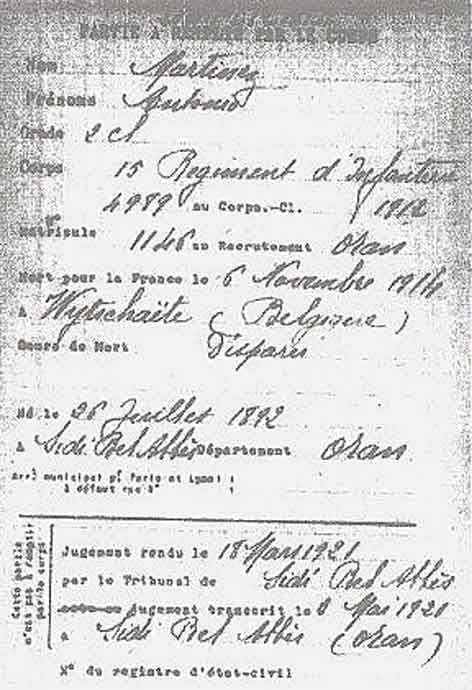 PARTIE À REMPLIR PAR LE CORPS
Nom Martinez
Prénoms Antonio
Grade 2 cl
Corps 15 Regiment d'Infanterie
N° 4989 au Corps.-Cl. 1912
Matricule 1146 au Recrutement Oran
Mort pour la France le 6 Novembre 1914
à Wytschaëte (Belgique)
Genre de Mort Disparu
Né le 26 Juillet 1892
à Sidi Bel Abbès Département Oran
Arrt municipal pr Paris et Lyon,
à défaut rue à N°
Cette partie
n'est pas à remplir
par le corps
Jugement rendu le 18 Mars 1921
par le Tribunal de Sidi Bel Abbès
Jugement transcrit le 8 Mai 1921
à Sidi Bel Abbès (Oran)
N° du registre d'état-civil